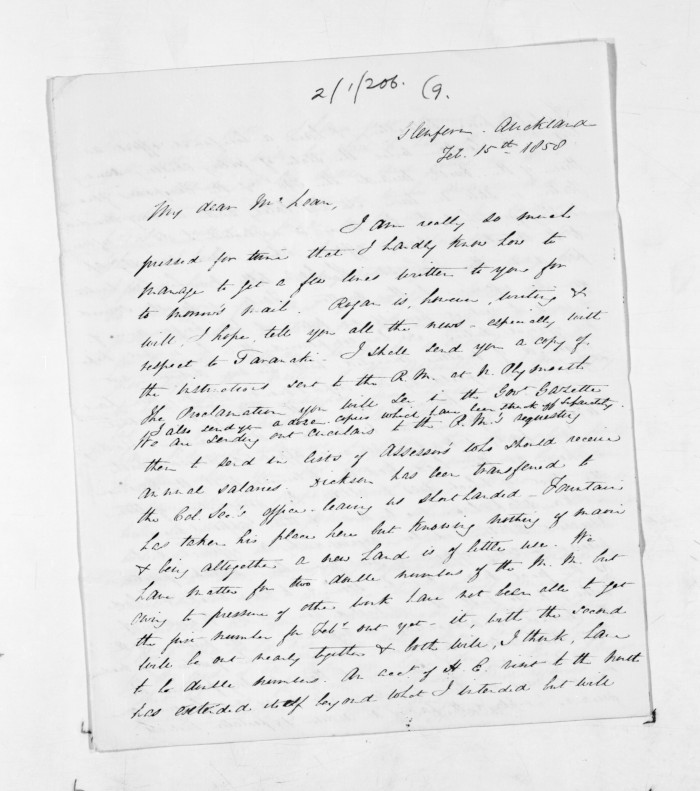 2/1/206. (9.
Auckland
Feb. 15th 1858
My dear McLean,
I am really so much
pressed for time that I hardly know how to
manage to get a few lines written to you for
to morrow's mail. Rogan is, however, writing &
will, I hope, tell you all the news - especially with
respect to Taranaki. I shall send you a copy of
the instructions sent to the R.M. at N. Plymouth
The Proclamation you will see in the Govt Gazette
I also send you a dozen copies which have been struck off separately.
We are sending out circulars to the R.M's requesting
them to send in lists of Assessors who should receive
annual salaries. Dickson has been transferred to
the Col. Sec's office leaving us shorthanded - Fountain
has taken his place here but knowing nothing of maori
& being altogether a new hand is of little use. We
have matter for two double numbers of the M. M. but
owing to pressure of other work have not been able to get
the first number for Feby out yet - it, with the second
will be out nearly together & both will, I think, have
to be double numbers. An acct of H. E. visit to the north
has extended itself beyond what I intended but will